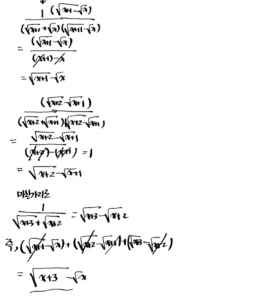 1 (√x+1 - √x)
(√x+1 + √x)(√x+1 - √x)
= (√x+1 - √x)
(x+1) - x
= √x+1 - √x
(√x+2 - √x+1)
(√x+2 + √x+1)(√x+2 - √x+1)
= √x+2 - √x+1
(x+2) - (x+1) = 1
= √x+2 - √x+1
마찬가지로
1
√x+3 + √x+2 = √x+3 - √x+2
즉, (√x+1 - √x) + (√x+2 - √x+1) + (√x+3 - √x+2)
= √x+3 - √x